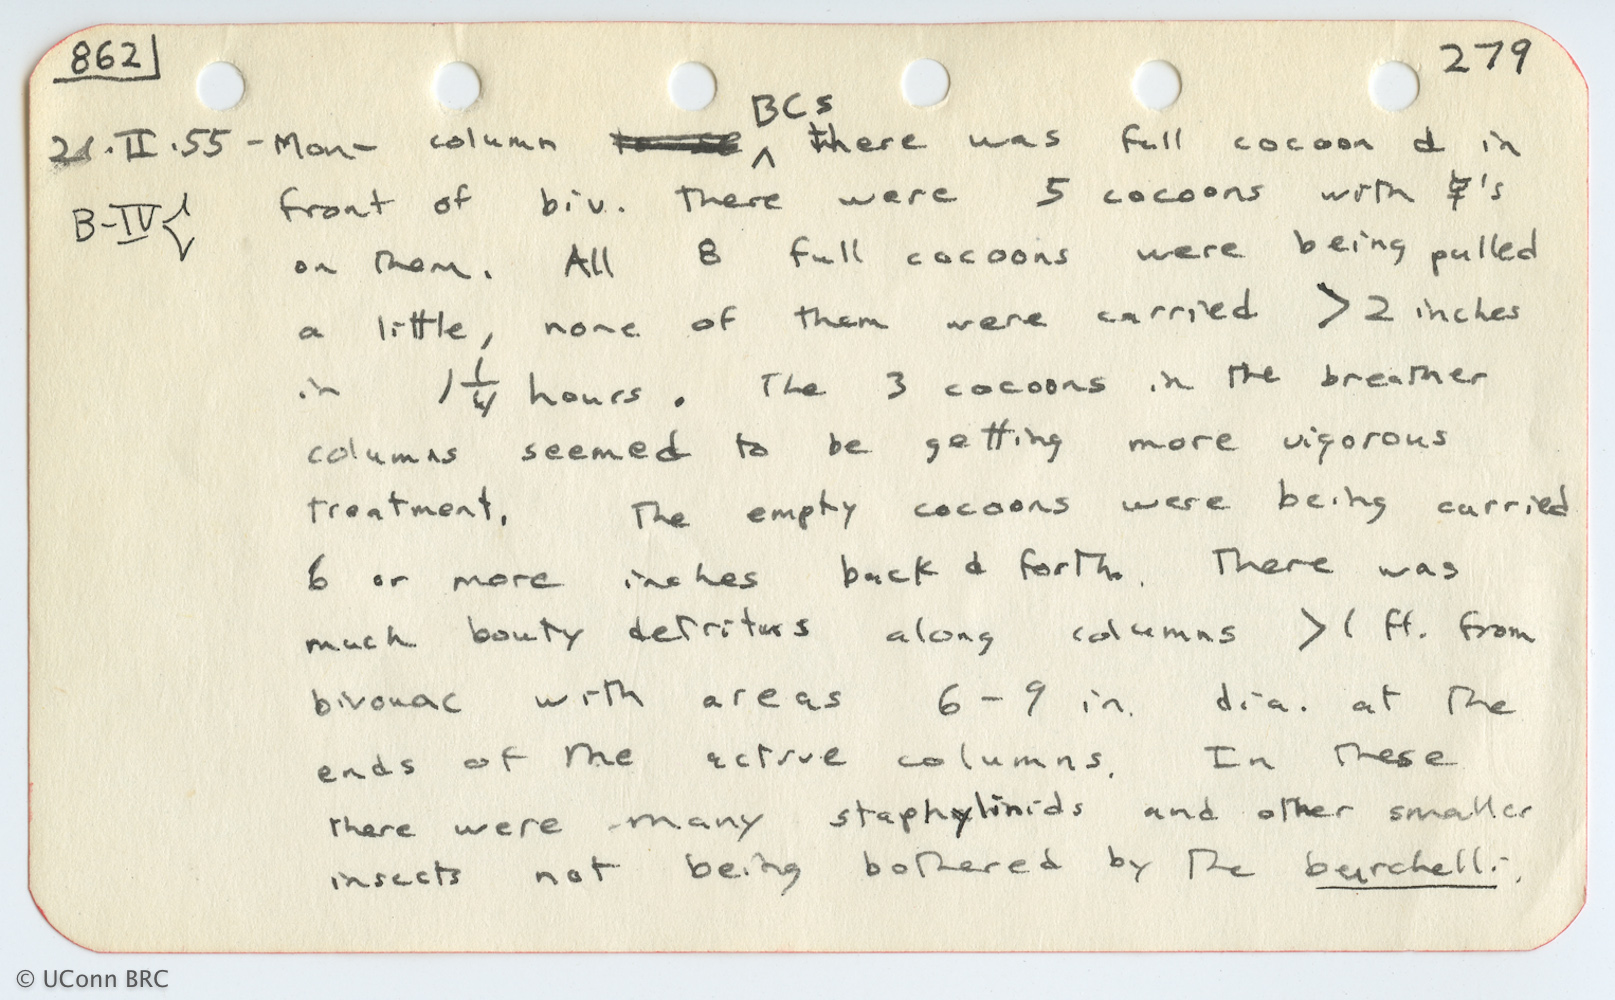 862 279
BCs
21.II.55 - Mon- column ^ there was full cocoon d in
B-IV front of biv. There were 5 cocoons with ☿'s
on them. All 8 full cocoons were being pulled
a little, none of them were carried >2 inches
in 1 1/4 hours. The 3 cocoons in the breather
columns seemed to be getting more vigorous
treatment. The empty cocoons were being carried
6 or more inches back d forth. There was
much bouty detritus along columns >1 ft. from
bivouac with areas 6-9 in. dia. at the
ends of the active columns. In these
there were many staphylinids and other smaller
insects not being bothered by the burchelli.
© UConn BRC